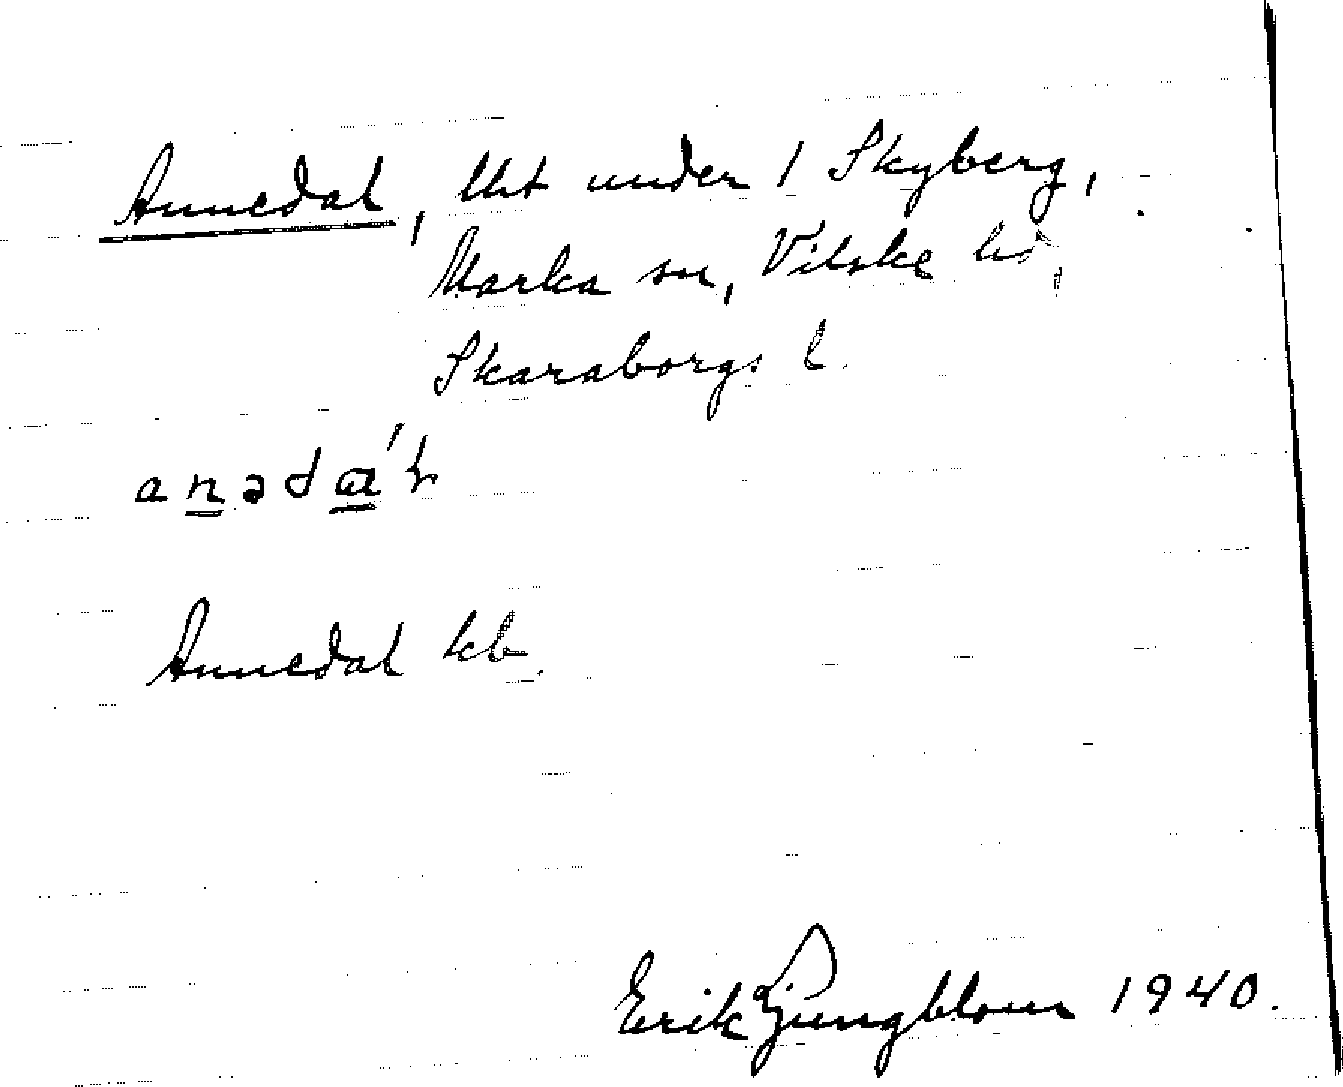 Annedal, lht under 1 Skyberg,
Marka sn, Vilske hd,
Skaraborgs l.
anədɑ́
Annedal kb.
Erik Ljungblom 1940.